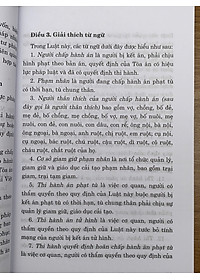 Điều 3. Giải thích từ ngữ
Trong Luật này, các từ ngữ dưới đây được hiểu như sau:
1. Người chấp hành án là người bị kết án, phải chịu
hình phạt theo bản án, quyết định của Tòa án có hiệu
lực pháp luật và đã có quyết định thi hành.
2. Phạm nhân là người đang chấp hành án phạt tù
có thời hạn, tù chung thân.
3. Người thân thích của người chấp hành án (sau
đây gọi là người thân thích) bao gồm vợ, chồng, bố đẻ,
mẹ đẻ, bố chồng, mẹ chồng, bố vợ, mẹ vợ, bố nuôi, mẹ
nuôi, con đẻ, con nuôi, con dâu, con rể, ông nội, bà nội,
ông ngoại, bà ngoại, anh ruột, chị ruột, em ruột, cụ nội,
cụ ngoại, bác ruột, chú ruột, cậu ruột, dì ruột, cô ruột,
cháu ruột của người bị kết án.
4. Cơ sở giam giữ phạm nhân là nơi tổ chức quản lý,
giam giữ và giáo dục cải tạo phạm nhân, bao gồm trại
giam, trại tạm giam.
5. Thi hành án phạt tù là việc cơ quan, người có
thẩm quyền theo quy định của Luật này buộc người bị
kết án phạt tù có thời hạn, tù chung thân phải chịu sự
quản lý giam giữ, giáo dục cải tạo.
6. Thi hành án tử hình là việc cơ quan, người có
thẩm quyền theo quy định của Luật này tước bỏ tính
mạng của người bị kết án.
7. Thi hành quyết định hoãn chấp hành án phạt tù
là việc cơ quan, người có thẩm quyền theo quy định